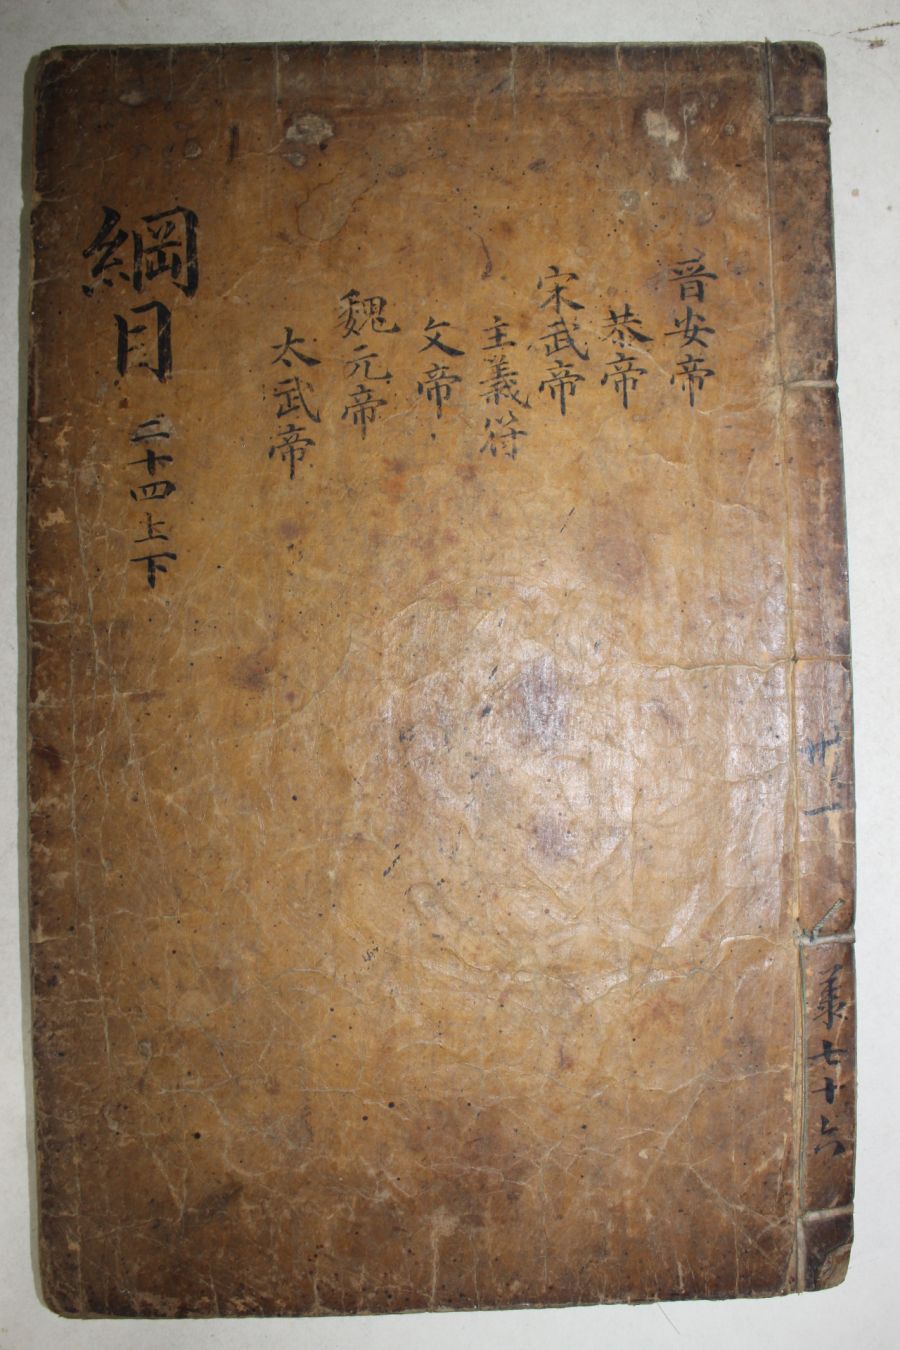 晉安帝
恭帝
宋武帝
主義符
文帝
魏元帝
太武帝
綱目 二十四上下
卅一
共七十六